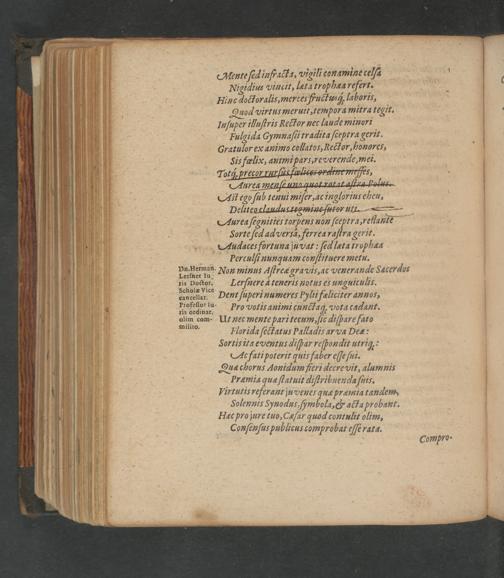 Mente sed infracta, vigili conamine celsa
Nigidius vincit, lata trophæa refert.
Hinc doctoralis, merces fructusq́;, laboris,
Quod virtus meruit, tempora mitra tegit.
Insuper illustris Rector nec laude minori
Fulgida Gymnasii tradita sceptra gerit.
Gratulor ex animo collatos, Rector, honores,
Sis fœlix, animi pars, reverende, mei.
Totq́;, precor rursus fœlices ordine messes,
Aurea mense uno quot rotat astra Polus.
Ast ego sub tenui miser, ac inglorius eheu,
Deliteo claudus tegmine sutor uti.
Aurea segnities torpens non sceptra, restante
Sorte sed adversâ, ferrea rastra gerit.
Audaces fortuna juvat: sed lata trophæa
Perculsi nunquam constituere metu.
Dn. Herman.
Lersner Iu-
ris Doctor,
Scholæ Vice
cancellar.
Professor iu-
ris ordinar.
olim com-
milito.
Non minus Astreæ gravis, ac venerande Sacerdos
Lersnere à teneris notus es unguiculis.
Dent superi numeres Pylii fœliciter annos,
Pro votis animi cunctaq́;, vota cadant.
Ut nec mente pari tecum, sic dispare fato
Florida sectatus Palladis arva Deæ:
Sortis ita eventus dispar respondit utriq́;:
Ac fati poterit quis faber esse sui.
Quæ chorus Aonidum fieri decrevit, alumnis
Præmia quæ statuit distribuenda suis.
Virtutis referant juvenes quæ præmia tandem,
Solennis Synodus, symbola, & acta probant.
Hæc pro jure tuo, Cæsar quod contulit olim,
Consensus publicus comprobat esse rata.
Compro-